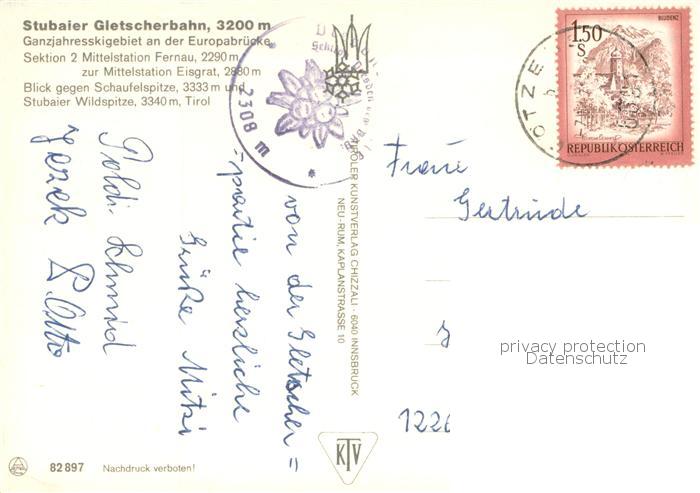 Stubaier Gletscherbahn, 3200 m
Ganzjahresskigebiet an der Europabrücke
Sektion 2 Mittelstation Fernau, 2290 m
zur Mittelstation Eisgrat, 2880 m
Blick gegen Schaufelspitze, 3333 m und
Stubaier Wildspitze, 3340 m, Tirol
2308 m
von der Gletscher=
=partie herzliche
Grüße Mitzi
Poldi Schmid
Jezek P. Otto
TIROLER KUNSTVERLAG CHIZZALI · 6040 INNSBRUCK
NEU-RUM, KAPLANSTRASSE 10
1.50
S
BLUDENZ
REPUBLIK ÖSTERREICH
ÖTZE
Frau
Gertrude
privacy protection
Datenschutz
122
KTV
82 897 Nachdruck verboten!